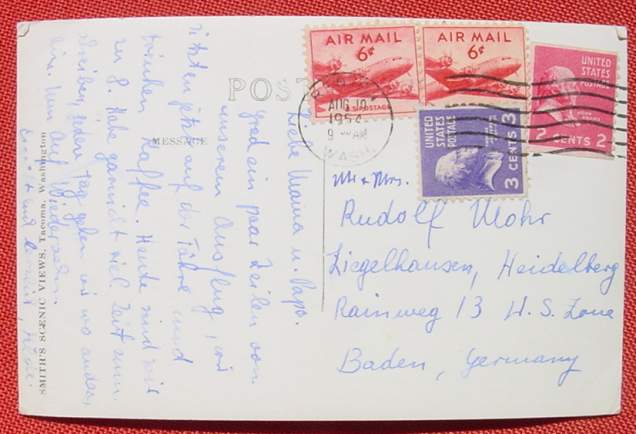 POST
MESSAGE
SMITH'S SCENIC VIEWS, Tacoma, Washington
Liebe Mama u. Papa.
grad ein paar Zeilen von
unserem Ausflug, wir
sitzen jetzt auf der Fähre und
trinken Kaffee. Heute sind wir
zu 8. Habe garnicht viel Zeit zum
schreiben, jeden Tag gehen wir wo anders
hin. Nun Auf Wiedersehen.
AIR MAIL
6¢
U.S. POSTAGE
AIR MAIL
6¢
UNITED STATES POSTAGE
2 CENTS 2
UNITED STATES POSTAGE
3 CENTS 3
AUG 10
9 AM
195
WASH.
Mr & Mrs.
Rudolf Mohr
Ziegelhausen, Heidelberg
Rainweg 13 U.S. Zone
Baden, Germany